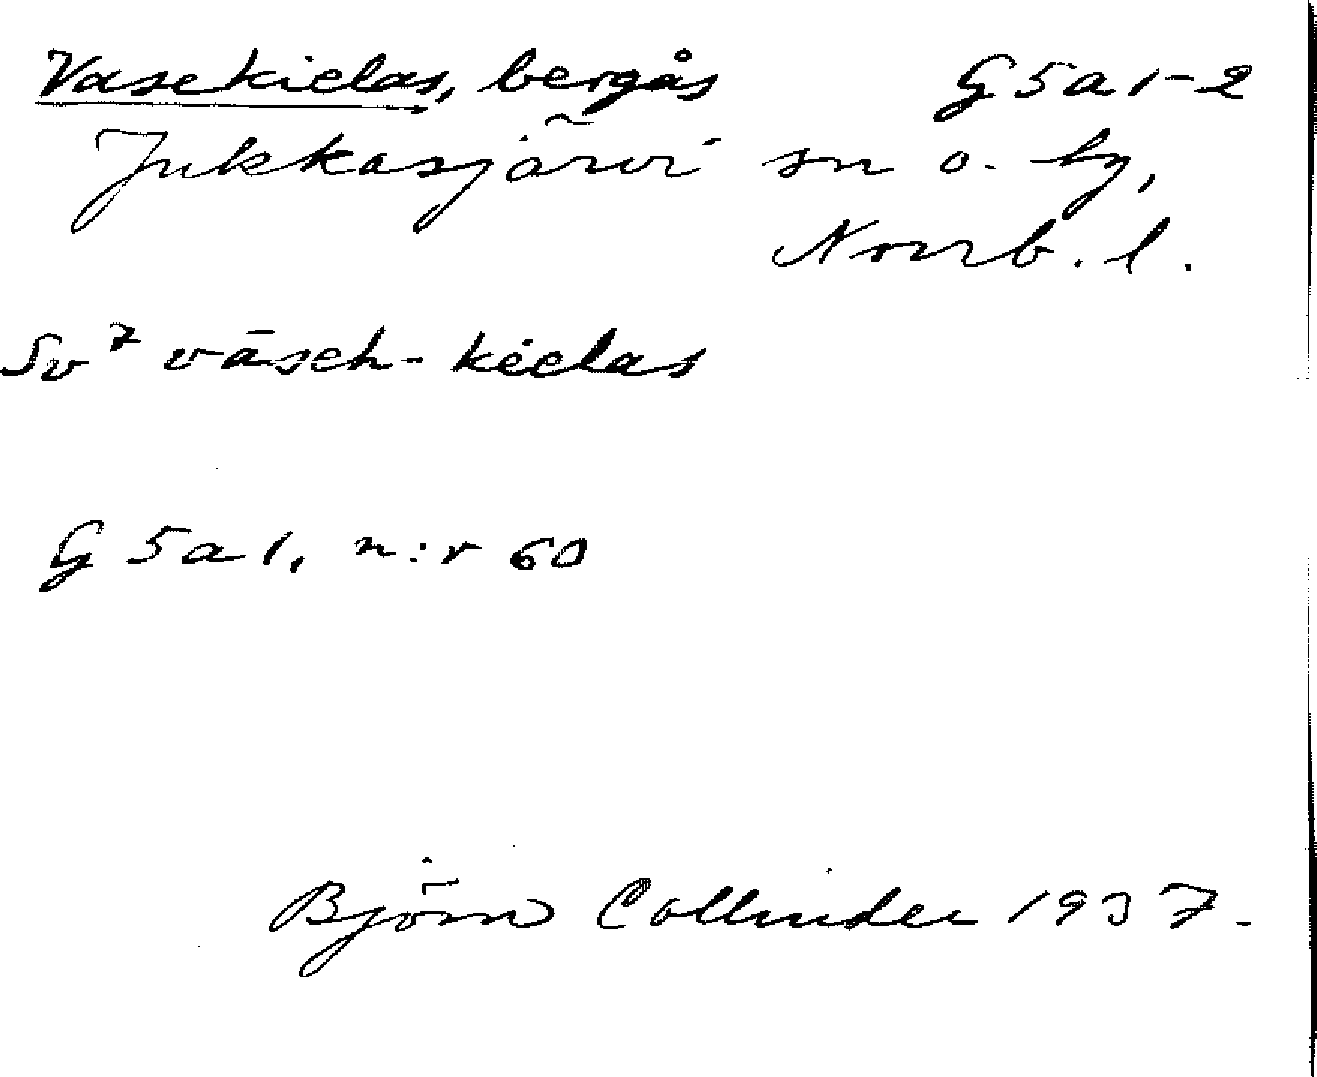 Vasekielas, bergås G5a1-2
Jukkasjärvi sn o. by,
Norrb. l.
Sv⁷ väsch-kielas
G 5a1, n:r 60
Björn Collinder 1937.